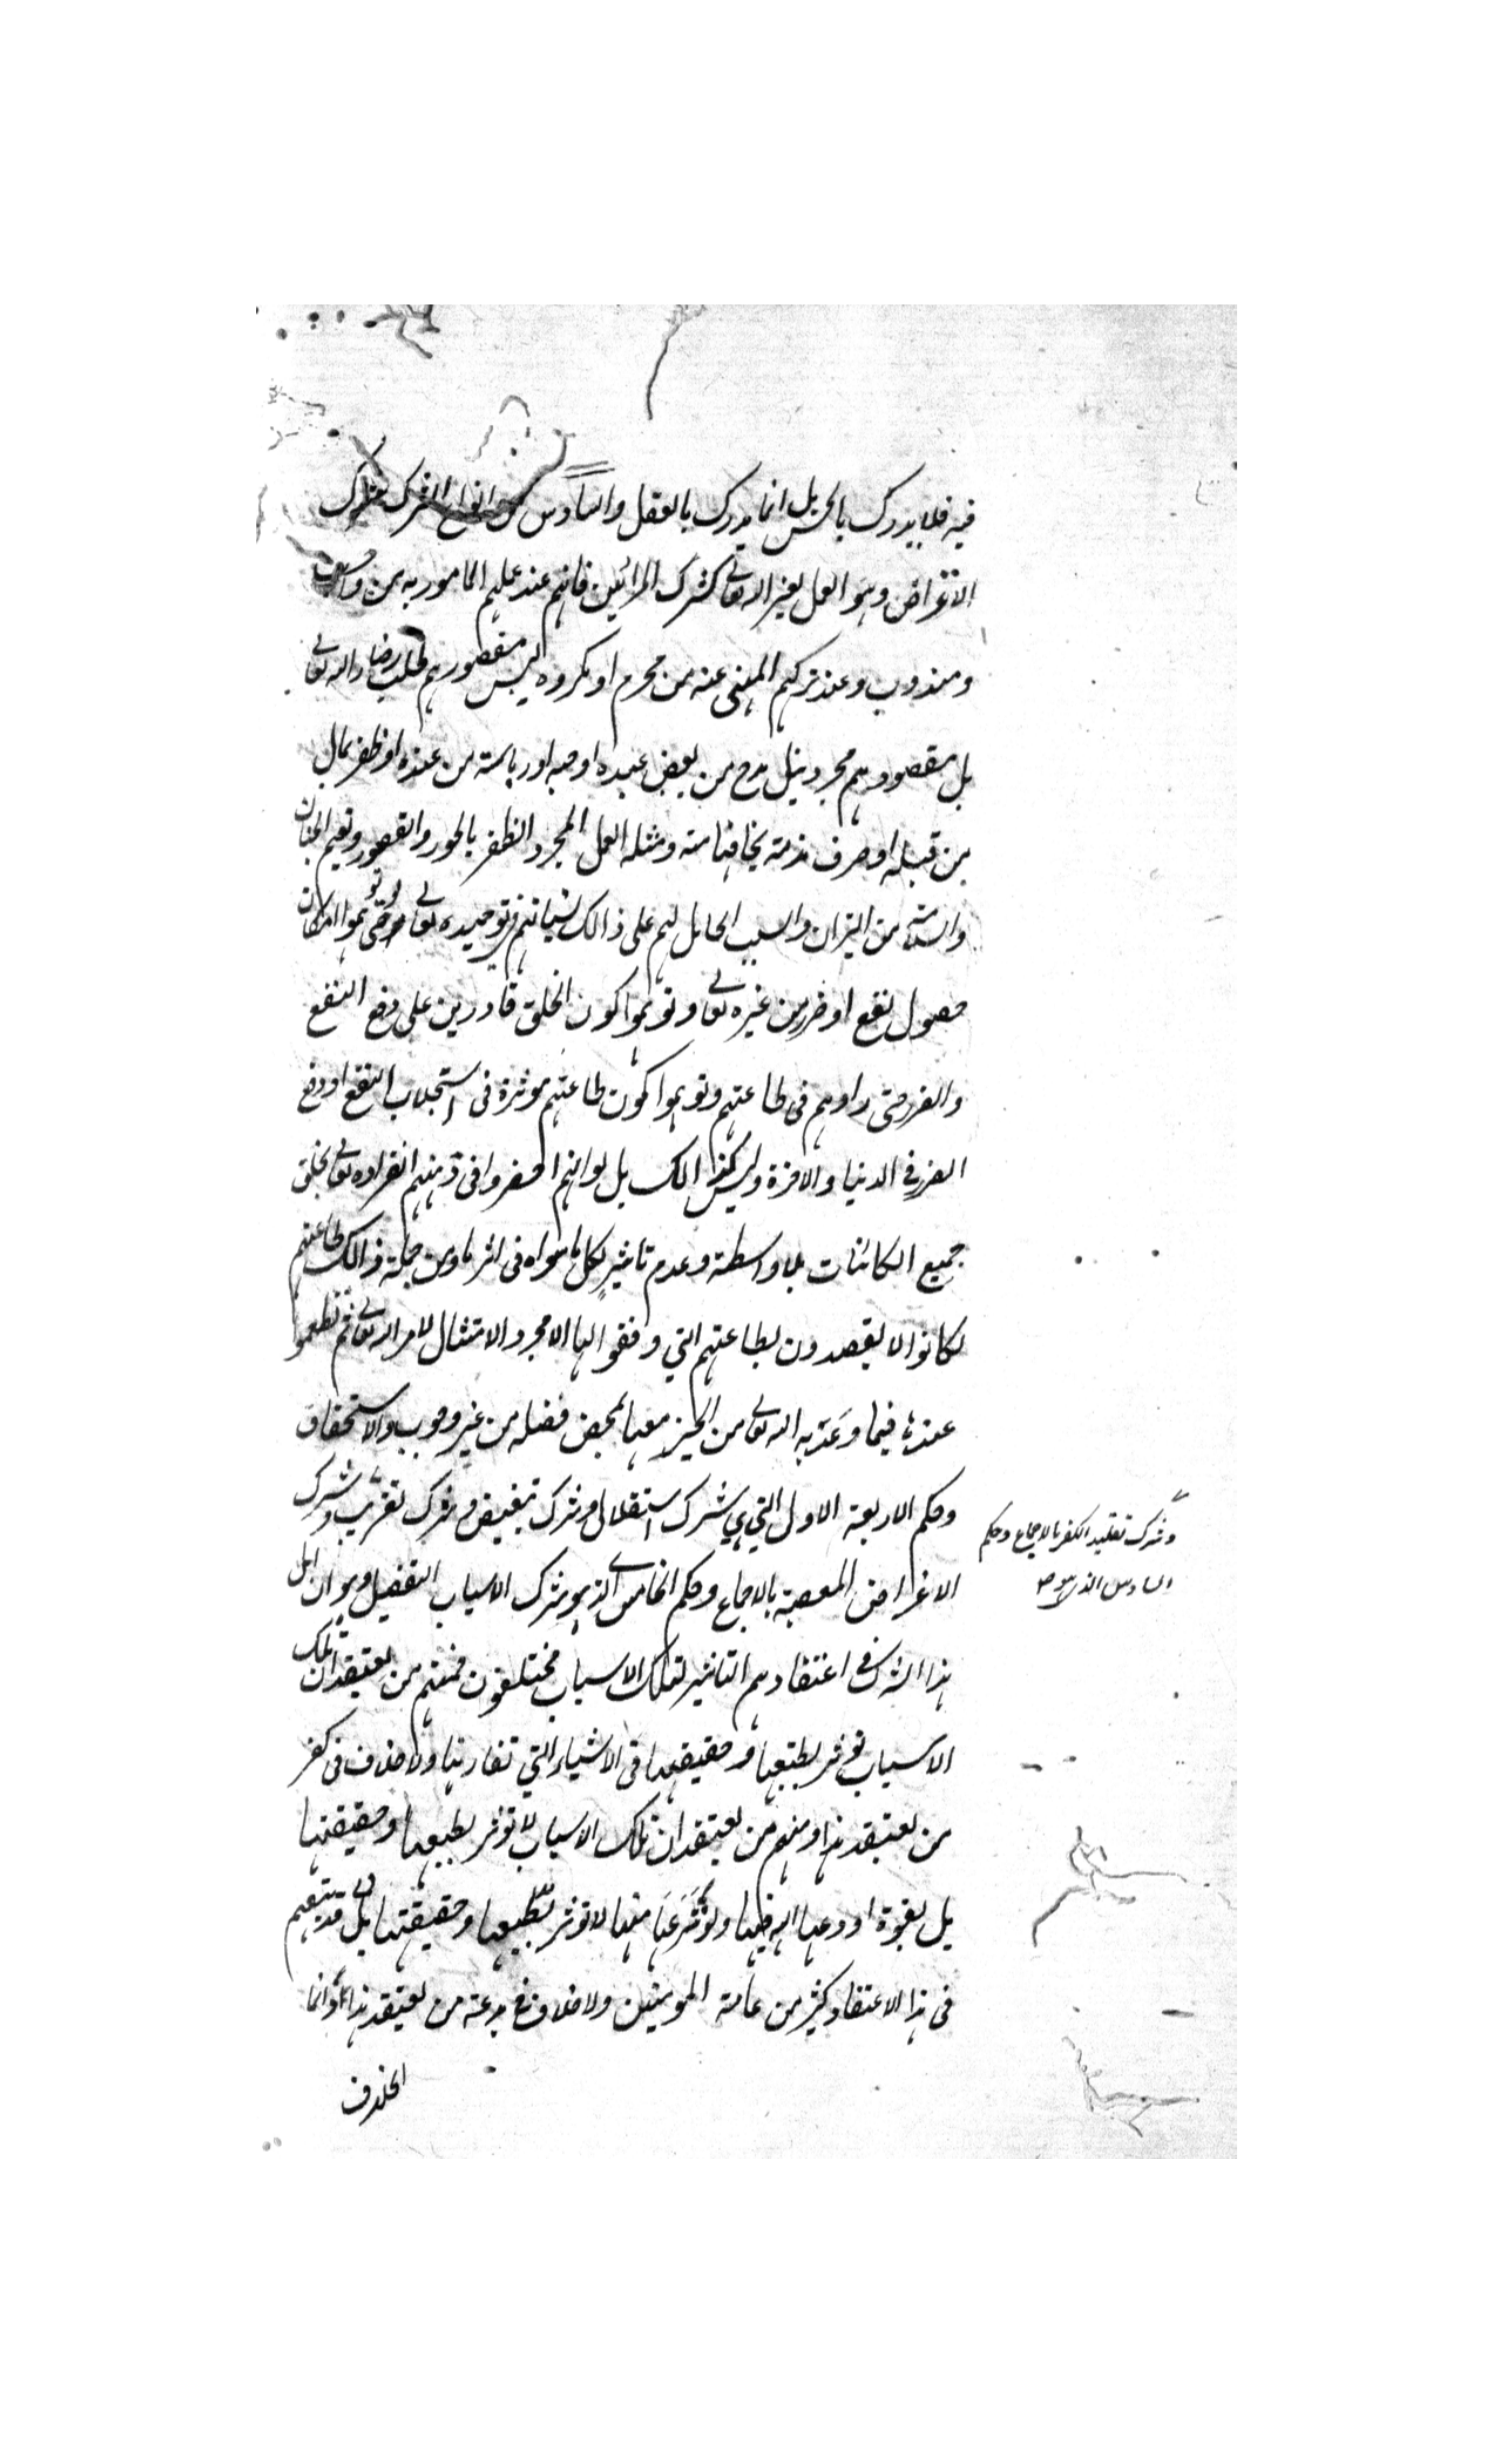 فيه فلا يدرك بالحس بل انما يدرك بالعقل والسادس من انواع الشرك شرك
الاغراض وهو العمل لغير الله تعالى كشرك المرائين فانهم عند عملهم المامور به من واجب
ومندوب وعند تركهم المنهي عنه من محرم او مكروه ليس مقصورهم طلب رضاء الله تعالى
بل مقصودهم مجرد نيل مدح من بعض عبيده او حبه اور ياسة من عنده او ظفر بمال
من قبله او صرف مذمة يخافها منه ومثله العمل لمجرد الظفر بالحور والقصور ونعيم الجنان
والسلامة من النيران والسبب الحامل لهم على ذالك نسيانهم توحيده تعالى حتى توهموا امكان
حصول نفع او ضرر من غيره تعالى وتوهموا كون الخلق قادرين على دفع النفع
والضرر حتى راوهم في طاعتهم وتوهموا كون طاعتهم موثرة في استجلاب النفع او دفع
الضرر في الدنيا والاخرة وليس كذالك بل لو انهم احضروا في ذهنهم انفراده تعالى بخلق
جميع الكائنات بلا واسطة وعدم تاثير لكل ما سواه في اثر ما ومن جملة ذالك طاعتهم
لكانوا لا يقصدون بطاعتهم التي وفقوا لها الا مجرد الامتثال لامر الله تعالى ثم تطمعوا
عندها فيما وعد به الله تعالى من الخير معها لمحض فضله من غير وجوب ولا استحقاق
وحكم الاربعة الاول التي هي شرك استقلال وشرك تبعيض وشرك تقريب وشرك
وشرك تقليد الكفر بالاجماع وحكم
السادس الذي هو
الاغراض المعصية بالاجماع وحكم الخامس الذي هو شرك الاسباب التفصيل وهو ان اهل
هذا الشرك في اعتقادهم التاثير لتلك الاسباب مختلفون فمنهم من يعتقد ان تلك
الاسباب توثر بطبعها وحقيقتها في الاشياء التي تقارنها ولا خلاف في كفر
من يعتقد هذا ومنهم من يعتقد ان تلك الاسباب لا توثر بطبعها وحقيقتها
بل بقوة اودعها الله فيها ولو نزعها منها لا توثر بطبعها وحقيقتها بل قد تبعهم
في هذا الاعتقاد كثير من عامة المومنين ولا خلاف في بدعة من يعتقد هذا وانما
الخلاف